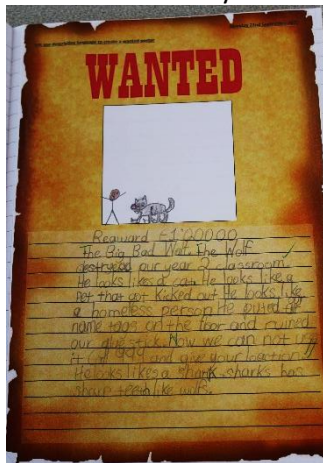 WANTED
Reaward £1'000'00.0
The Big Bad Wolf. The Wolf
destroyed our year 2 classroom.
He looks likes a cat. He looks like a
pet that got kicked out. He looks like
a homeless person. He
name tags on the floor and ruined
our glue stick. Now we can not
it Call 999 and give your location
He looks likes a shark sharks has
sharp teeth like wolfs.